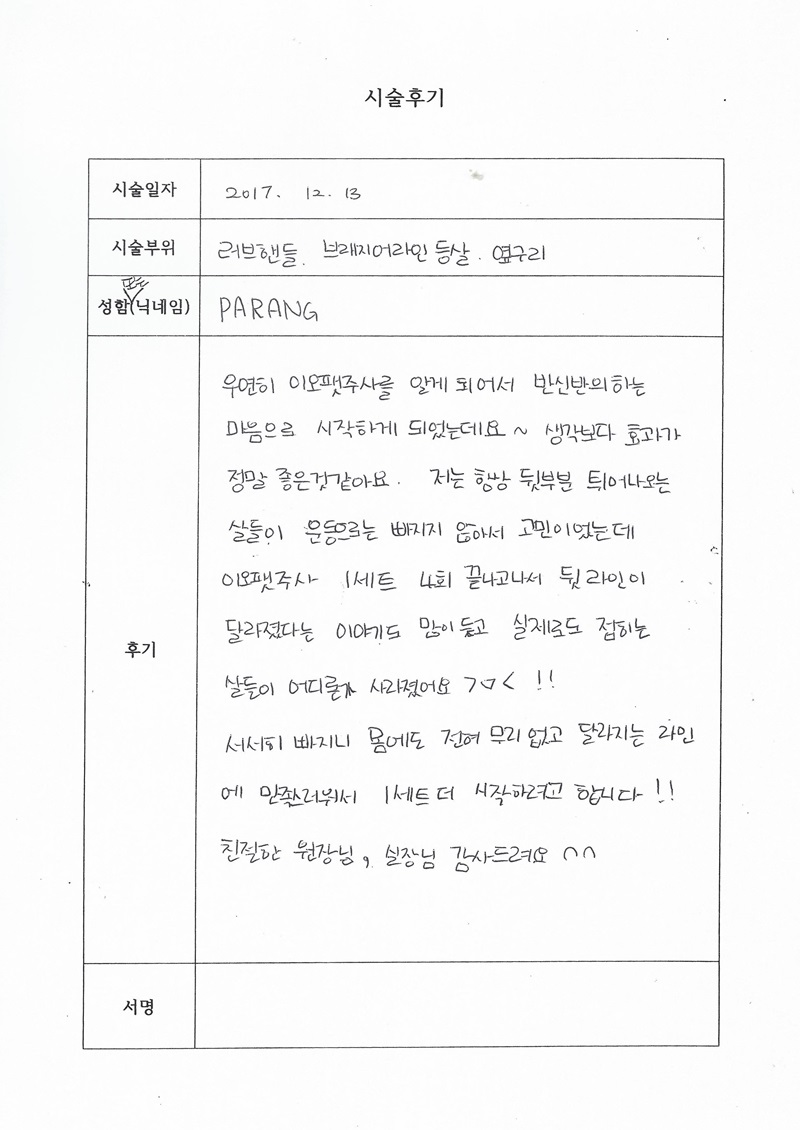 시술후기
시술일자 2017. 12. 13
시술부위 러브핸들. 브래지어라인 등살. 옆구리
또는
성함(닉네임) PARANG
후기
우연히 이오팻주사를 알게 되어서 반신반의하는
마음으로 시작하게 되었는데요~ 생각보다 효과가
정말 좋은것같아요. 저는 항상 뒷부분 튀어나오는
살들이 운동으로는 빠지지 않아서 고민이었는데
이오팻주사 1세트 4회 끝나고나서 뒷라인이
달라졌다는 이야기도 많이 듣고 실제로도 접히는
살들이 어디론가 사라졌어요 >ㅁ< !!
서서히 빠지니 몸에도 전혀 무리 없고 달라지는 라인
에 만족스러워서 1세트 더 시작하려고 합니다 !!
친절한 원장님, 실장님 감사드려요 ^^
서명